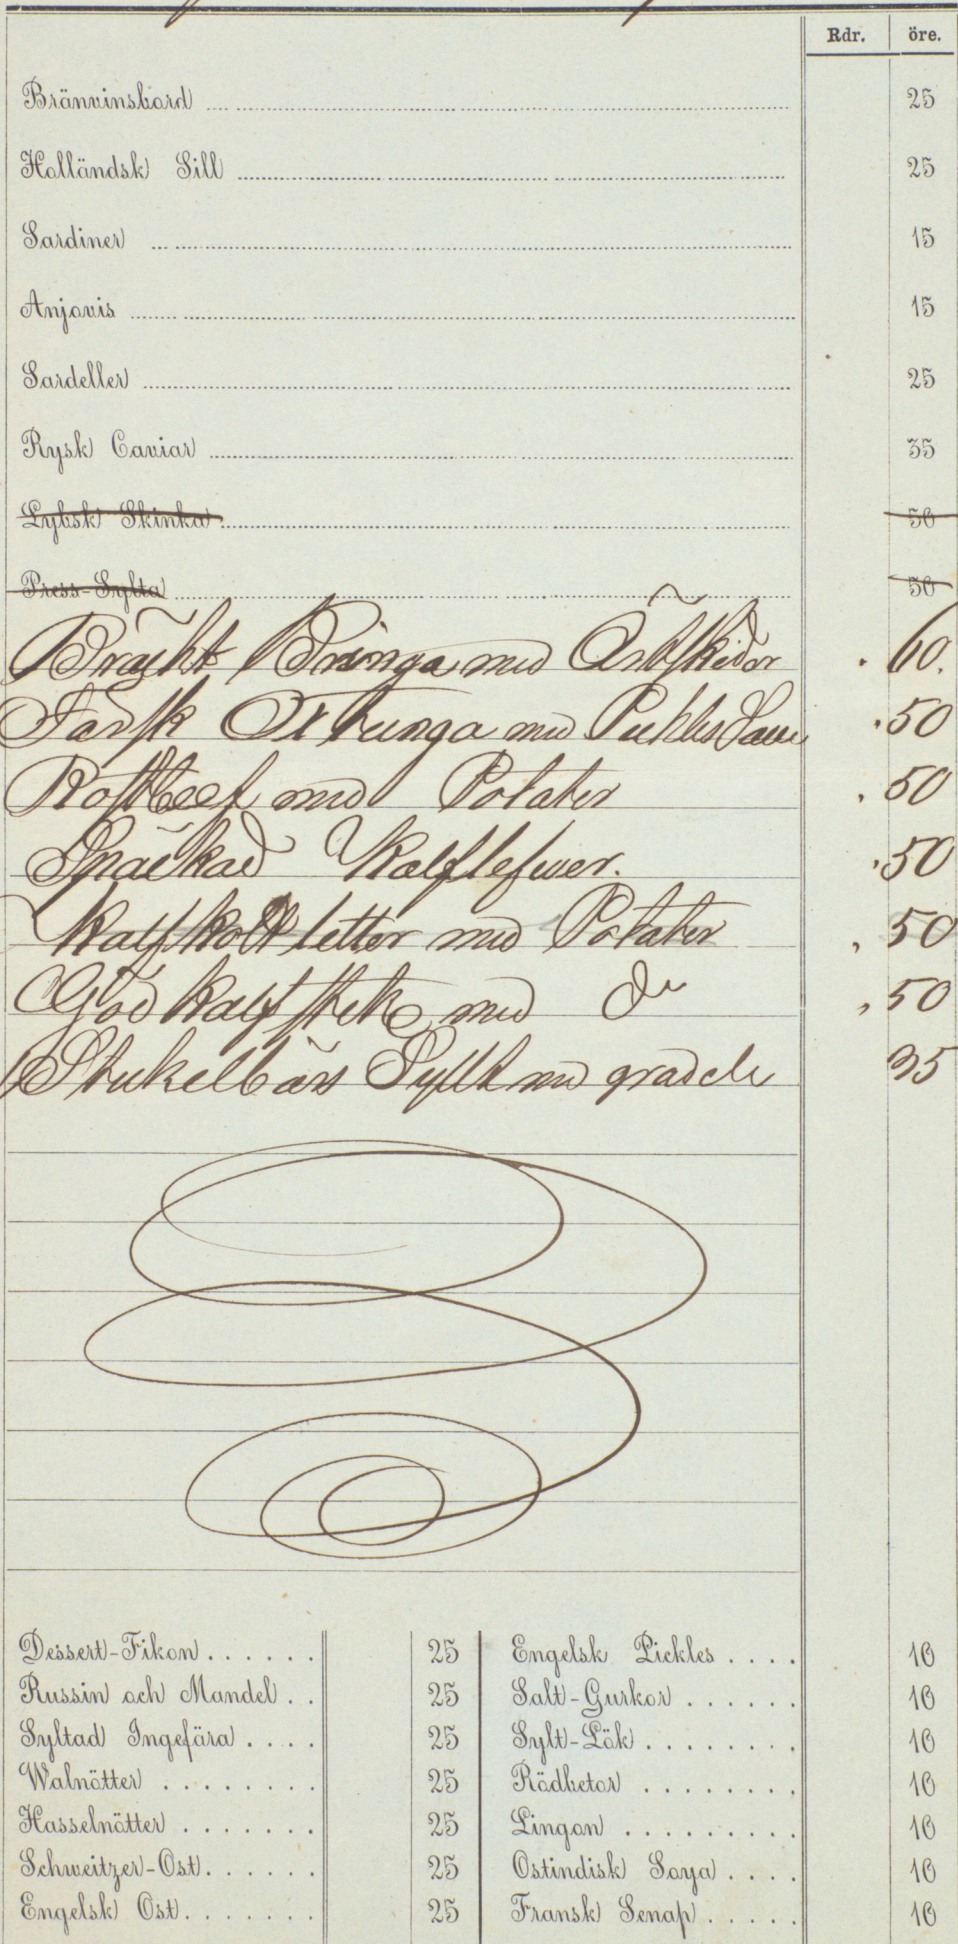 Rdr. öre.
Bränvinsbord 25
Holländsk Sill 25
Sardiner 15
Anjovis 15
Sardeller 25
Rysk Caviar 35
Lybsk Skinka 50
Press-Sylta 50
Bräckt Bringa med Ärtskidor 60.
Färsk Oxtunga med Pickles Saus 50
Rostbeef med Potater 50
Späckad Kalflefwer. 50
Kalfkottletter med Potater 50
God Kalfstek med do 50
Stickelbärs Sylt med grädde 35
Dessert-Fikon 25 Engelsk Pickles 10
Russin och Mandel 25 Salt-Gurkor 10
Syltad Ingefära 25 Sylt-Lök 10
Walnötter 25 Rödbetor 10
Hasselnötter 25 Lingon 10
Schweitzer-Ost 25 Ostindisk Soya 10
Engelsk Ost 25 Fransk Senap 10